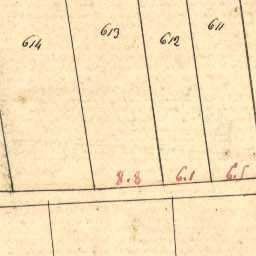 614 613 612 611
8.8 6.1 6.5